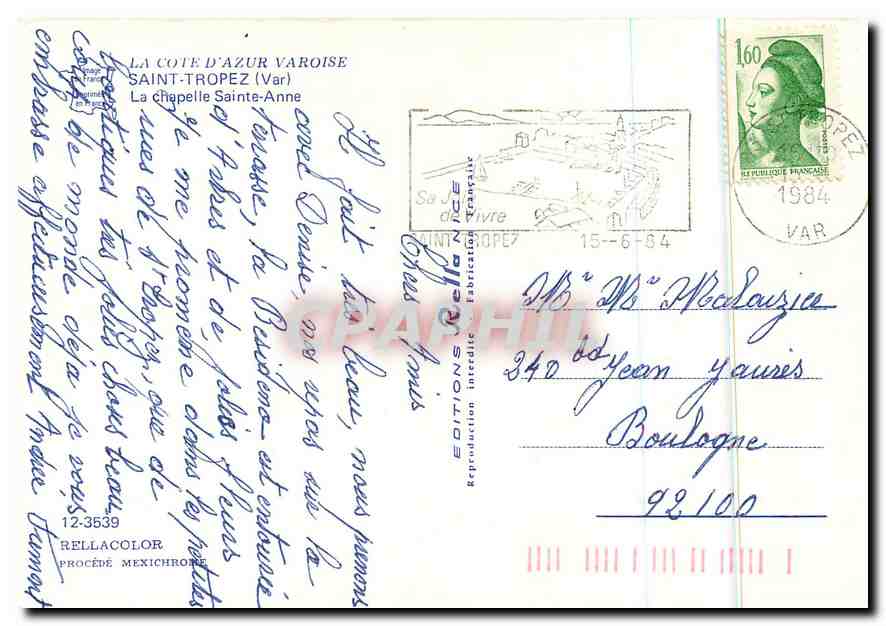 LA COTE D'AZUR VAROISE
SAINT-TROPEZ (Var)
La chapelle Sainte-Anne
Image
de France
Imprimée
en France
1,60
REPUBLIQUE FRANÇAISE
POSTES
ST TROPEZ
1984
VAR
Sa Joie
de Vivre
SAINT TROPEZ 15--6-84
Chers Amis
Il fait très beau, nous prenons
avec Denise, nos repas sur la
terrasse, la Résidence est entourée
d'Arbres et de jolies fleurs
Je me promène dans les petites
rues de St Tropez, ou de
boutiques très jolies choses beau
coup de monde déjà je vous
embrasse affectueusement
EDITIONS Rella NICE
Reproduction interdite Fabrication Française
CPAPHIL
240 bd Jean Jaurés
Boulogne
92100
12-3539
RELLACOLOR
PROCÉDÉ MEXICHROME